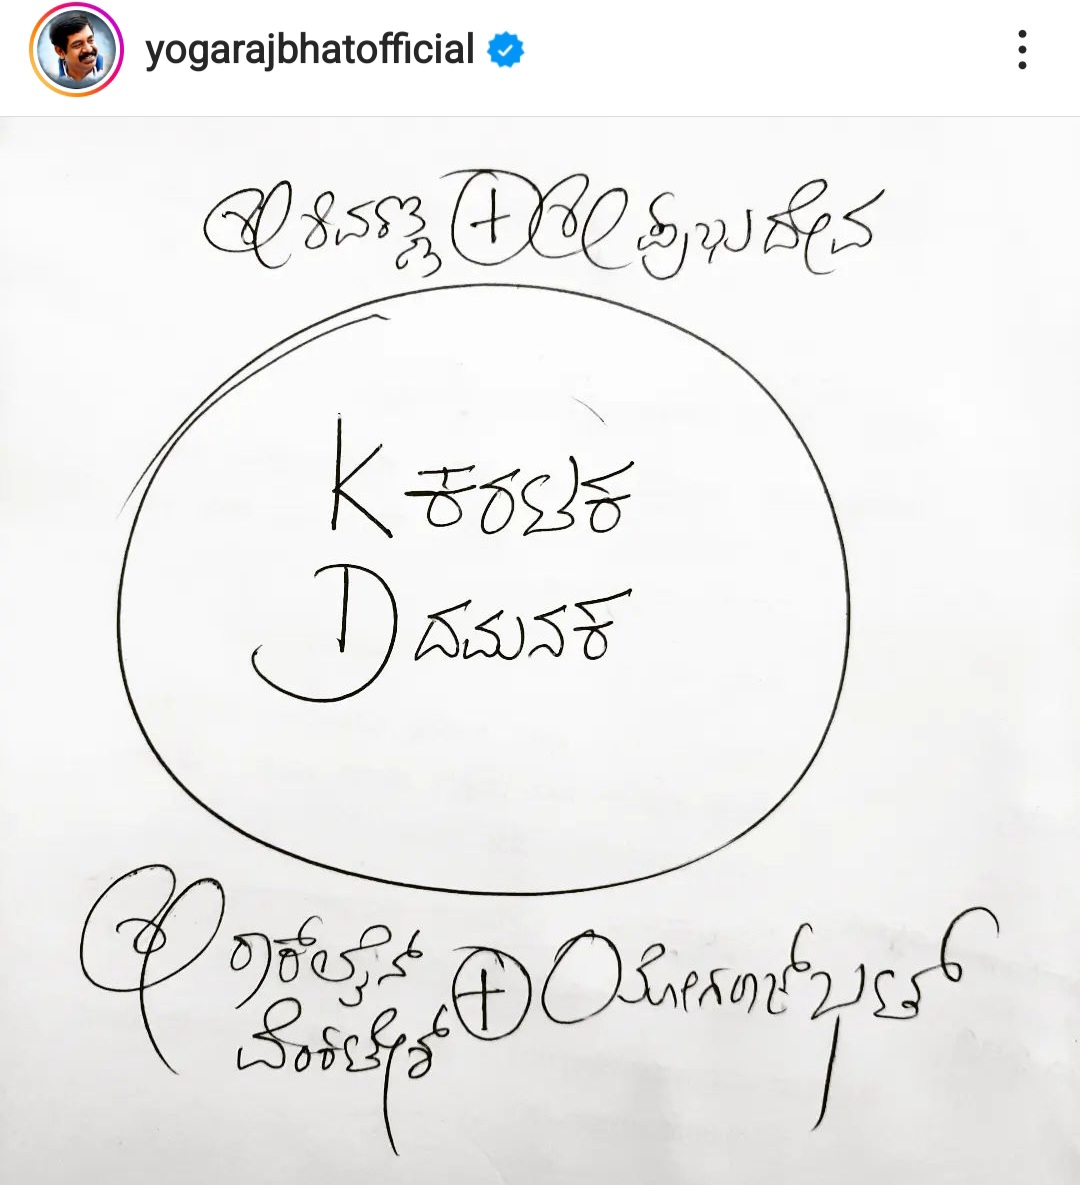 yogarajbhatofficial
ಶ್ರೀ ಶಿವಣ್ಣ + ಶ್ರೀ ಪ್ರಭುದೇವ
K ಕರಟಕ
D ದಮನಕ
ಶ್ರೀ ರಾಕ್‌ಲೈನ್ + ಯೋಗರಾಜ್ ಭಟ್
ವೆಂಕಟೇಶ್